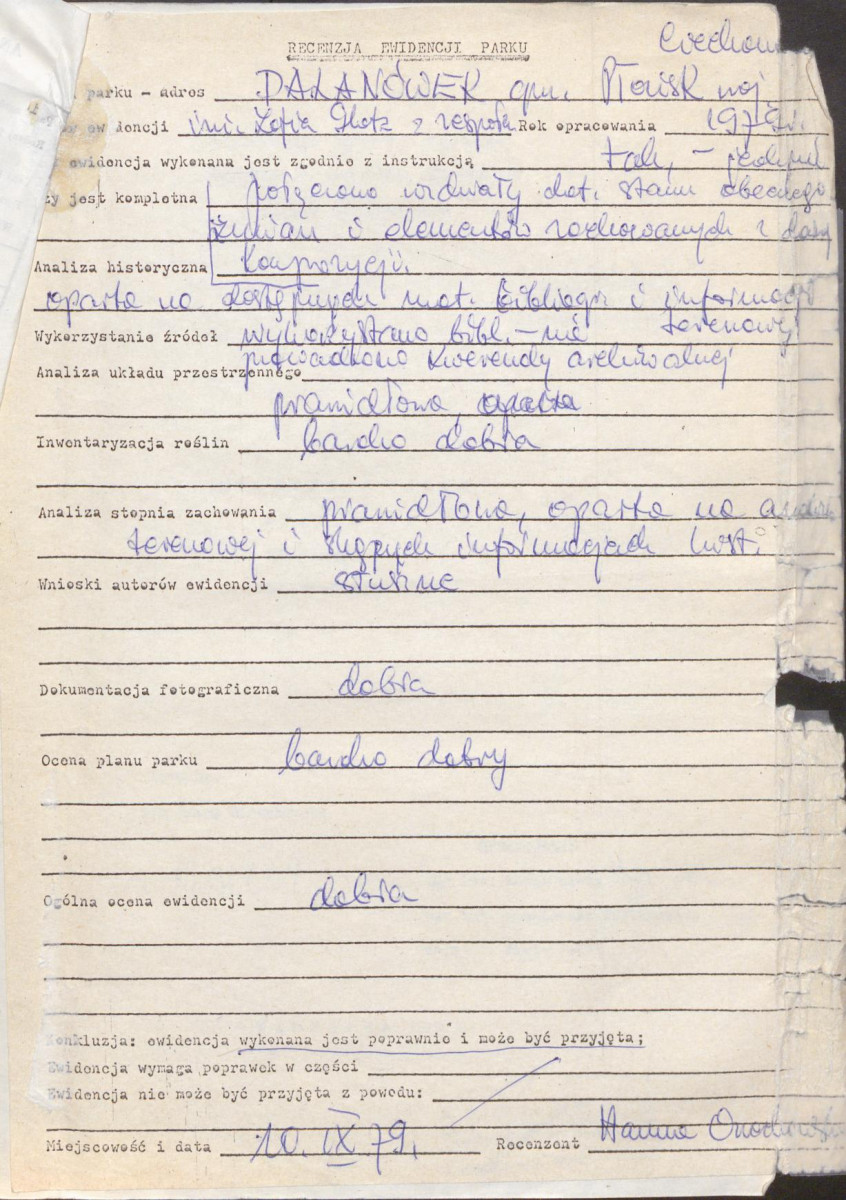 RECENZJA EWIDENCJI PARKU
parku - adres DALANÓWEK gm. Płońsk woj
ewidencji inż. Zofia z zespołem Rok opracowania 1979 r.
ewidencja wykonana jest zgodnie z instrukcją tak, - jednak
jest kompletna połączono rozdziały dot. stanu obecnego
zmian i elementów zachowanych z dawnej
Analiza historyczna kompozycji.
oparta na dostępnych mat. bibliogr i informacji
Wykorzystanie źródeł wykorzystano bibl. - nie terenowej
prowadzono kwerendy archiwalnej
Analiza układu przestrzennego
prawidłowa, oparta
Inwentaryzacja roślin bardzo dobra
Analiza stopnia zachowania prawidłowa, oparta na
terenowej i skąpych informacjach hist.
Wnioski autorów ewidencji słuszne
Dokumentacja fotograficzna dobra
Ocena planu parku bardzo dobry
Ogólna ocena ewidencji dobra
Konkluzja: ewidencja wykonana jest poprawnie i może być przyjęta;
Ewidencja wymaga poprawek w części
Ewidencja nie może być przyjęta z powodu:
Miejscowość i data 10. IX 79. Recenzent Hanna